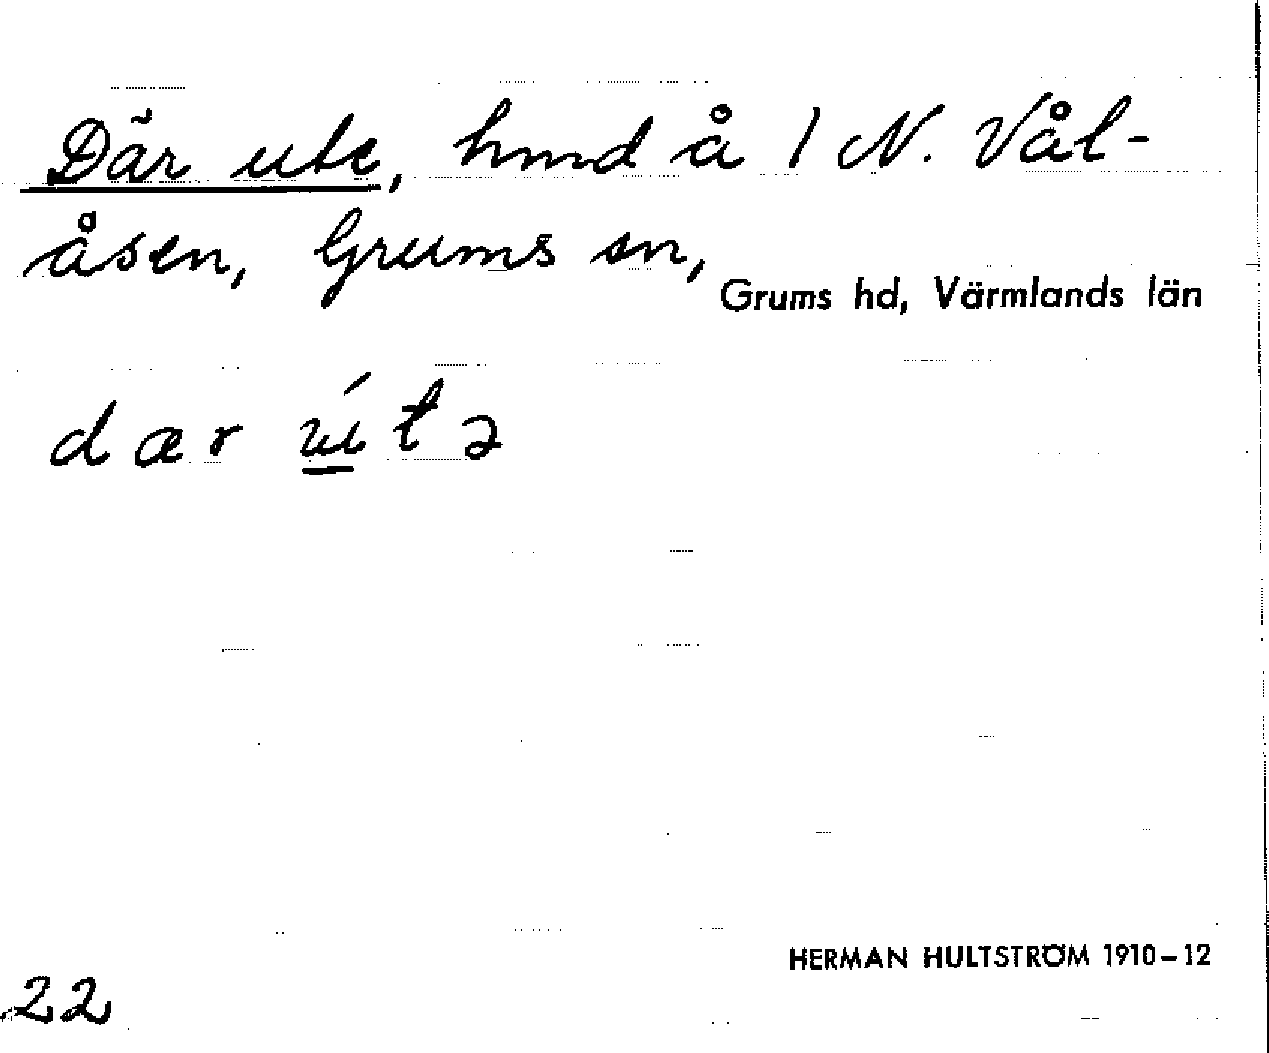 Där ute, hmd å 1 N. Vål-
åsen, Grums sn,
Grums hd, Värmlands län
dær ú̲tə
HERMAN HULTSTRÖM 1910–12
22